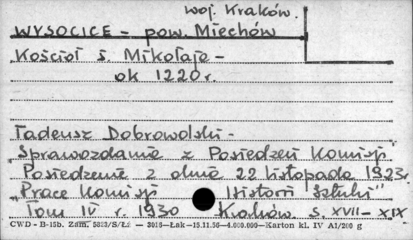 woj. Kraków.
WYSOCICE - pow. Miechów
Kościół ś. Mikołaja -
ok 1220 r.
Tadeusz Dobrowolski -
„Sprawozdanie z Posiedzeń Komisji"
Posiedzenie z dnia 22 listopada 1923r.
„Prace Komisji Historii Sztuki"
Tom IV r. 1930 Kraków s. XVII - XIX
CWD - B-15b. Zam. /S/Łś — -Łak—15.11.56—4.000.000—Karton kl. IV A1/200 g